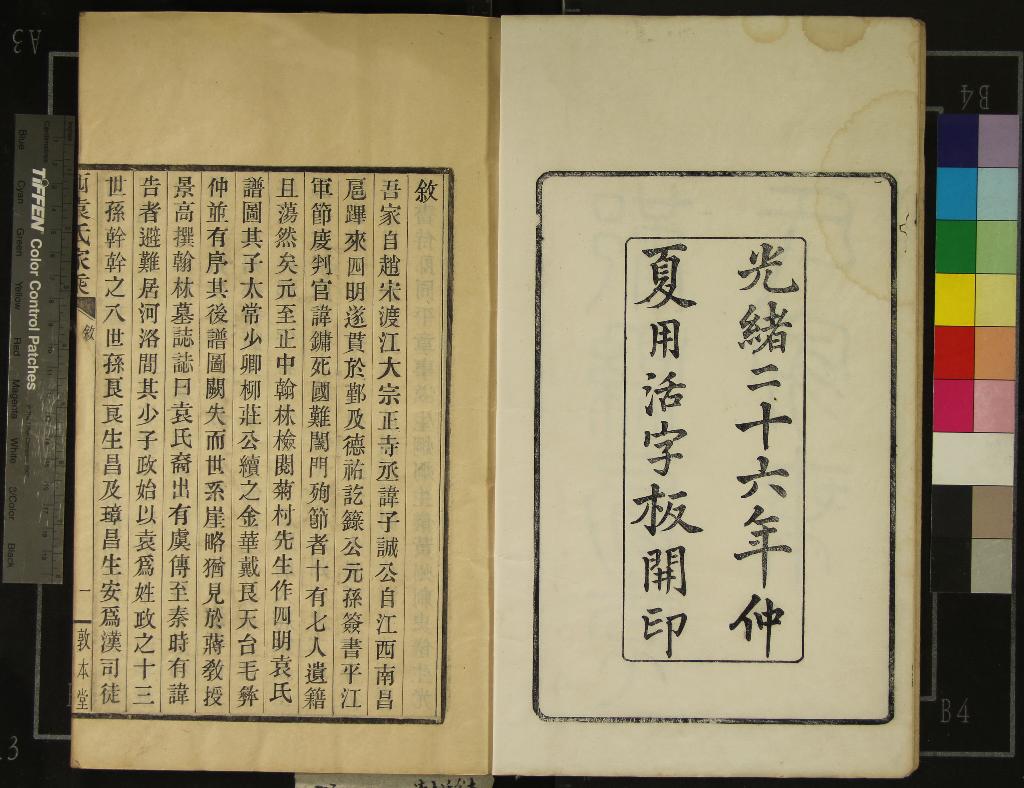 光緒二十六年仲
夏用活字板開印
敘
吾家自趙宋渡江大宗正寺丞諱子誠公自江西南昌
扈蹕來四明遂貫於鄞及德祐訖籙公元孫簽書平江
軍節度判官諱鏞死國難闔門殉節者十有七人遺籍
且蕩然矣元至正中翰林檢閱菊村先生作四明袁氏
譜圖其子太常少卿柳莊公續之金華戴良天台毛彝
仲並有序其後譜圖闕失而世系崖略猶見於蔣教授
景高撰翰林墓誌誌曰袁氏裔出有虞傳至秦時有諱
告者避難居河洛間其少子政始以袁爲姓政之十三
世孫幹幹之八世孫良良生昌及璋昌生安爲漢司徒
袁氏家乘
敘
一
敦本堂
TIFFEN Color Control Patches
Blue
Cyan
Green
Yellow
Red
Magenta
White
3/Color
Black
A3
B4
B4